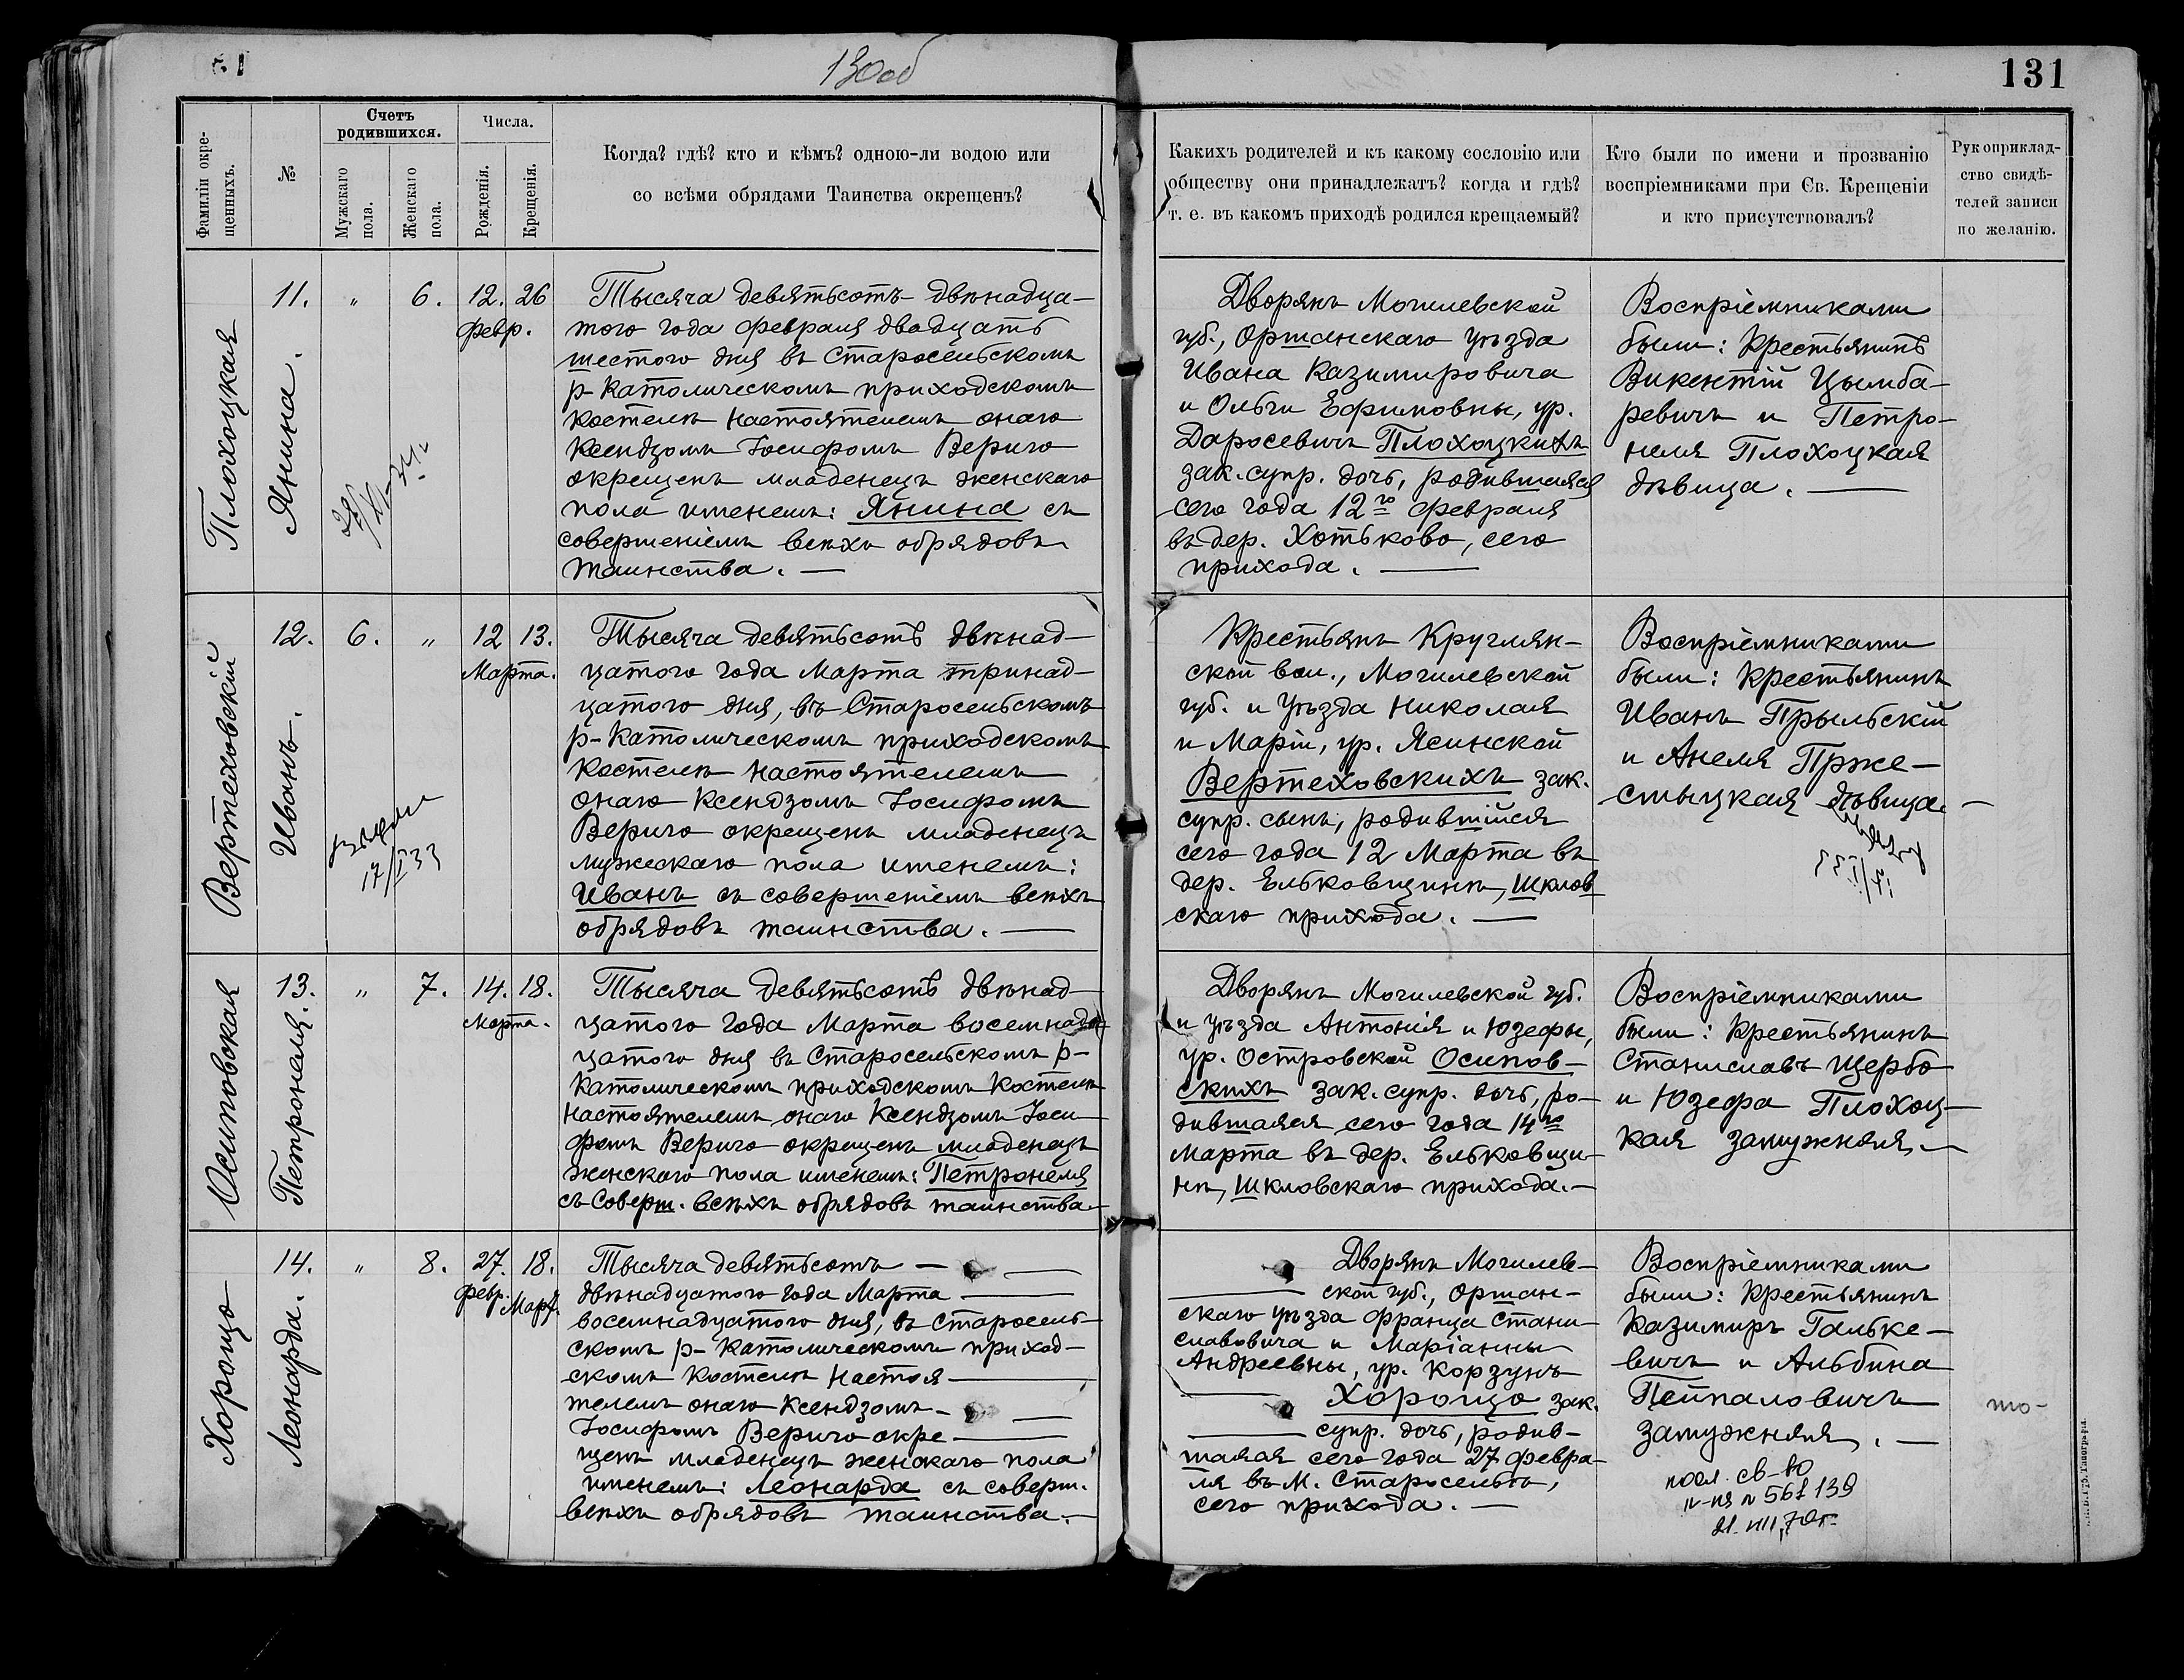 130об
131
Фамиліи окре-
щенныхъ.
№
Счетъ
родившихся.
Мужскаго
пола.
Женскаго
пола.
Числа.
Рожденія.
Крещенія.
Когда? гдѣ? кто и кѣмъ? одною-ли водою или
со всѣми обрядами Таинства окрещенъ?
Какихъ родителей и къ какому сословію или
обществу они принадлежатъ? когда и гдѣ?
т. е. въ какомъ приходѣ родился крещаемый?
Кто были по имени и прозванію
воспріемниками при Св. Крещеніи
и кто присутствовалъ?
Рукоприклад-
ство свидѣ-
телей записи
по желанію.
Плохоцкая
Янина.
11. " 6. 12. 26
Февр.
Тысяча девятьсотъ двѣнадца-
того года Февраля двадцать
шестого дня въ Старосельскомъ
р-Католическомъ приходскомъ
Костелѣ Настоятелемъ онаго
Ксендзомъ Іосифомъ Вериго
окрещенъ младенецъ женскаго
пола именемъ: Янина съ
совершеніемъ всѣхъ обрядовъ
таинства. —
Дворянъ Могилевской
губ., Оршанскаго уѣзда
Ивана Казимировича
и Ольги Ефимовны, ур.
Даросевичъ Плохоцкихъ
зак. супр. дочь, родившаяся
сего года 12го Февраля
въ дер. Хотьково, сего
прихода. —
Воспріемниками
были: Крестьянинъ
Викентій Цымба-
ревичъ и Петро-
неля Плохоцкая
дѣвица. —
Вертеховскій
Иванъ.
12. 6. " 12 13.
Марта.
17/I 33
Тысяча девятьсотъ двѣнад-
цатого года Марта тринад-
цатого дня, въ Старосельскомъ
р-Католическомъ приходскомъ
Костелѣ Настоятелемъ
онаго Ксендзомъ Іосифомъ
Вериго окрещенъ младенецъ
мужескаго пола именемъ:
Иванъ съ совершеніемъ всѣхъ
обрядовъ таинства. —
Крестьянъ Круглян-
ской вол., Могилевской
губ. и уѣзда Николая
и Маріи, ур. Ясинской
Вертеховскихъ зак.
супр. сынъ, родившійся
сего года 12 Марта въ
дер. Ельковщинѣ, Шклов-
скаго прихода. —
Воспріемниками
были: Крестьянинъ
Иванъ Прыльскій
и Анеля Прже-
смыцкая дѣвица. —
17/I 33
Осиповская
Петронеля.
13. " 7. 14. 18.
Марта.
Тысяча девятьсотъ двѣнад-
цатого года Марта восемнад-
цатого дня въ Старосельскомъ р-
Католическомъ приходскомъ Костелѣ
Настоятелемъ онаго Ксендзомъ Іоси-
фомъ Вериго окрещенъ младенецъ
женскаго пола именемъ: Петронеля
съ соверш. всѣхъ обрядовъ таинства. —
Дворянъ Могилевской губ.
и уѣзда Антонія и Юзефы,
ур. Островской Осипов-
скихъ зак. супр. дочь, ро-
дившаяся сего года 14го
Марта въ дер. Ельковщи-
нѣ, Шкловскаго прихода. —
Воспріемниками
были: Крестьянинъ
Станиславъ Щербо
и Юзефа Плохоц-
кая замужняя. —
Хорощо
Леонарда.
14. " 8. 27. 18.
Февр. Март.
Тысяча девятьсотъ —
двѣнадцатого года Марта —
восемнадцатого дня, въ Старосель-
скомъ р-Католическомъ приход-
скомъ Костелѣ Настоя-
телемъ онаго Ксендзомъ —
Іосифомъ Вериго окре-
щенъ младенецъ женскаго пола
именемъ: Леонарда съ соверш.
всѣхъ обрядовъ таинства. —
Дворянъ Могилев-
ской губ., Оршан-
скаго уѣзда Франца Стани-
славовича и Маріанны
Андреевны, ур. Корзунъ
Хорощо зак.
супр. дочь, родив-
шаяся сего года 27 Февра-
ля въ М. Староселье,
сего прихода. —
Воспріемниками
были: Крестьянинъ
Казимиръ Галькe-
вичъ и Альбина
Пейпаловичъ
замужняя. —
21. VIII. 70г.